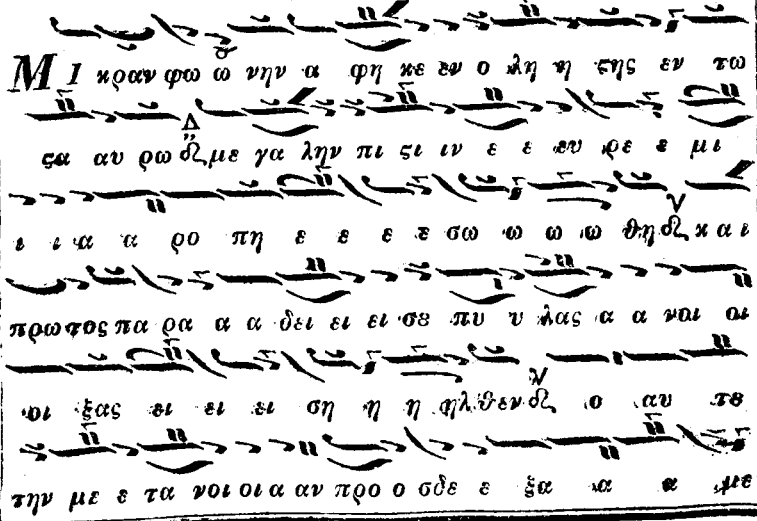 ΜΙ κραν φω ω νην α φη κε εν ο λη η ϛης εν τω
ϛα αυ ρω με γα λην πι ϛι ιν ε ε ευ ρε ε μι
ι ι α α ρο πη ε ε ε ε σω ω ω ω θη και
πρω τος πα ρα α α δει ει ει σε πυ υ λας α α νοι οι
οι ξας ει ει ει ση η η ηλ θεν ο αυ τε
την με ε τα νοι οι α αν προ ο σδε ε ξα α α με